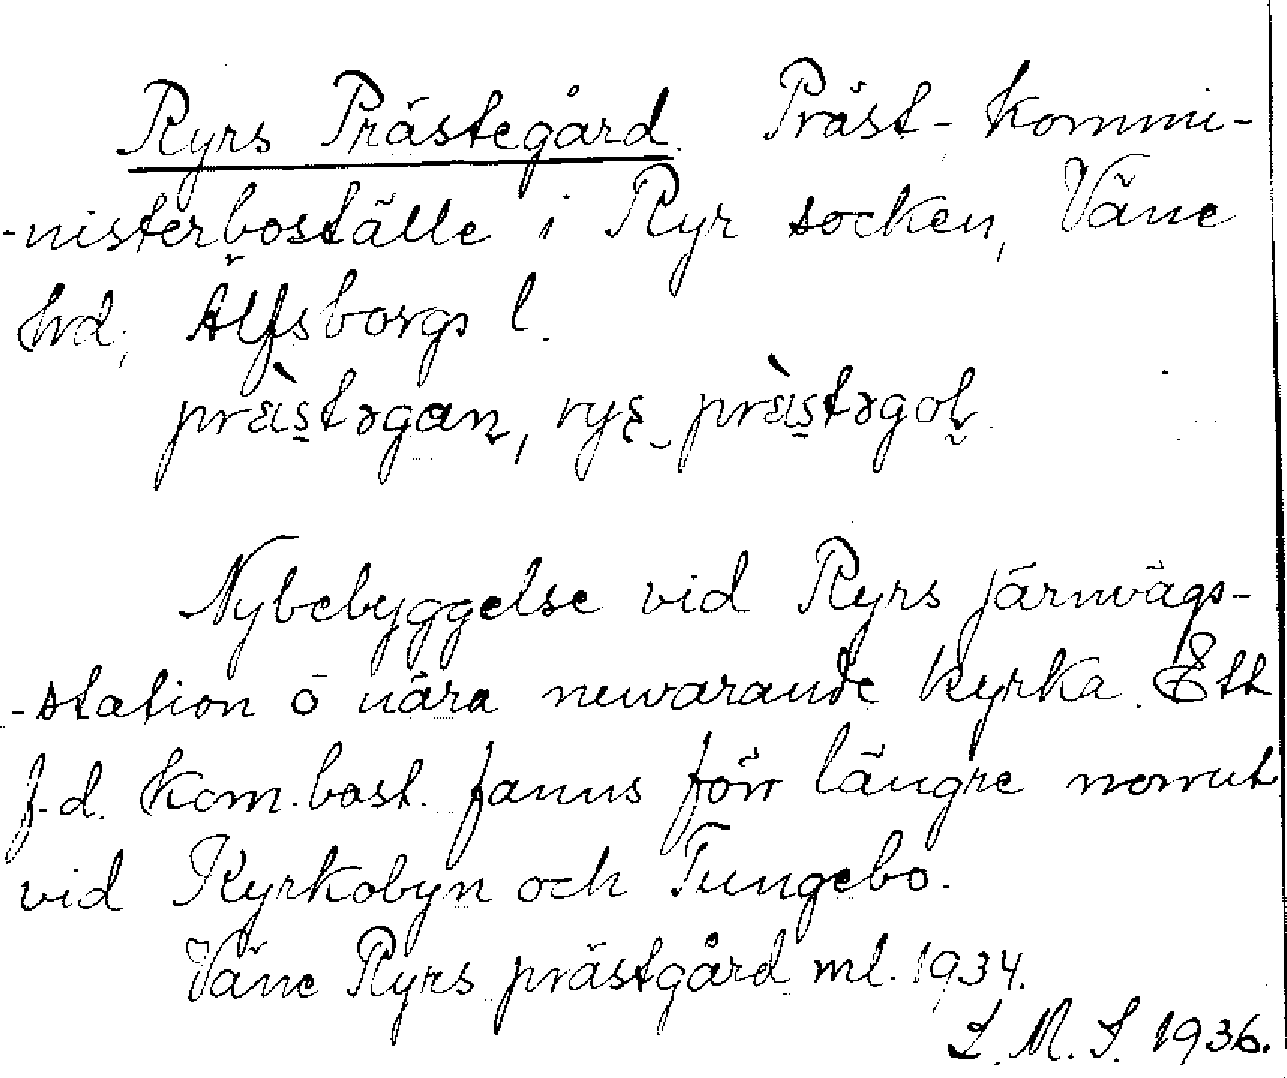 Ryrs Prästegård. Präst- kommi-
-nisterboställe i Ryr socken, Väne
hrd, Älfsborgs l.
Nybebyggelse vid Ryrs järnvägs-
-station ö nära nuvarande kyrka. Ett
f.d. kom.bost. fanns förr längre norrut
vid Kyrkobyn och Tungebo.
Väne Ryrs prästgård ml. 1934.
L. M. S. 1936.